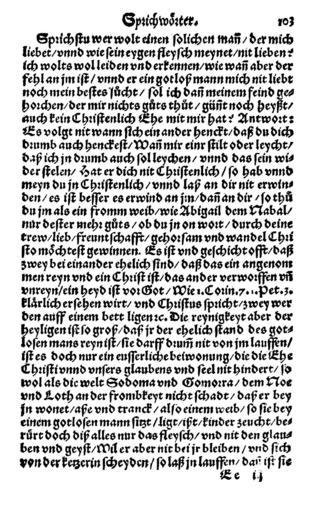 Sprichwörter. 103
Sprichstu wer wolt einen solichen mañ / der mich
liebet / vnnd wie sein eygen fleysch meynet / nit lieben?
ich wolts wol leiden vnd erkennen / wie wañ aber der
fehl an jm ist / vnnd er ein gotloß mann mich nit liebt
noch mein bestes sücht / sol ich dañ meinem feind ge⸗
horchen / der mir nichts gůts thůt / güñt noch heyßt /
auch kein Christenlich Ehe mit mir hat? Antwort:
Es volgt nit wann sich ein ander henckt / daß du dich
drumb auch henckest / Wañ mir einr stilt oder leycht /
daß ich jn drumb auch sol leychen / vnnd das sein wi⸗
der stelen / Hat er dich nit Christenlich / so hab vnnd
meyn du jn Christenlich / vnnd laß an dir nit erwin⸗
den / es ist besser es erwind an jm / dañ an dir / so thů
du jm als ein fromm weib / wie Abigail dem Nabal /
nůr dester mehr gůts / ob du jn on wort / durch deine
trew / lieb / freuntschafft / gehorsam vnd wandel Chri
sto möchtest gewinnen. Es ist vnd geschicht offt / daß
zwey bei einander ehelich sind / daß das ein angenom
men reyn vnd ein Christ ist / das ander verworffen vñ
vnreyn / ein heyd ist vor Got / Wie 1. Corin. 7. 1. Pet. 3.
klärlich ersehen wirt / vnd Christus spricht / zwey wer
den auff einem bett ligen ꝛc. Die reynigkeyt aber der
heyligen ist so groß / daß jr der ehelich stand des got⸗
losen mans reyn ist / sie darff drum̃ nit von jm lauffen /
ist es doch nur ein eusserliche beiwonung / die die Ehe
Christi vnnd vnsers glaubens vnd seel nit hindert / so
wol als die welt Sodoma vnd Gomorra / dem Noe
vnd Loth an der frombkeyt nicht schadt / daß er bey
jn wonet / aße vnd tranck / also einem weib / so sie bey
einem gotlosen mann sitzt / ligt / ißt / kinder zeucht / be⸗
rürt doch diß alles nur das fleysch / vnd nit den glau⸗
ben vnd geyst / Wil er aber nit bei jr bleiben / vnd sich
von der ketzerin scheyden / so laß jn lauffen / dañ ist sie
Ee ij